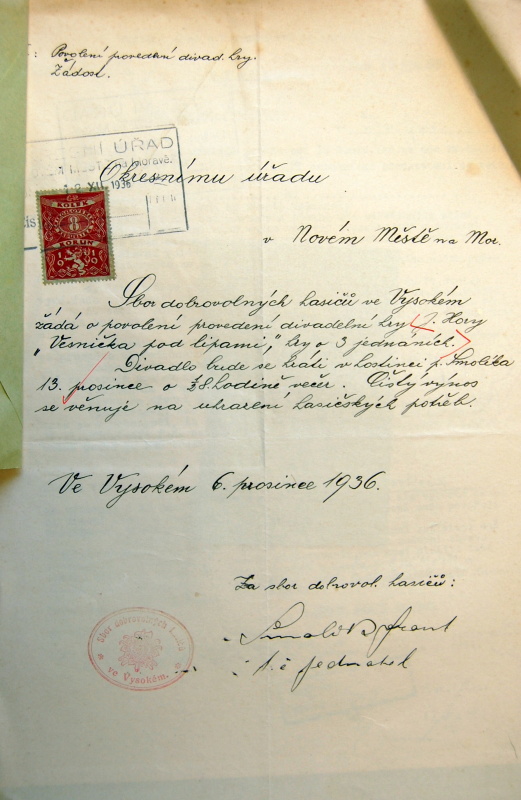 Povolení provedení divad. hry.
Žádost.
ÚŘAD
na Moravě.
1936
Okresnímu úřadu
KOLEK
8
KORUN
19
v Novém Městě na Mor.
Sbor dobrovolných hasičů ve Vysokém
žádá o povolení provedení divadelní hry J. Hory
„Vesnička pod lipami," hry o 3 jednáních.
Divadlo bude se hráti v hostinci p. Smolíka
13. prosince o ¾8. hodině večer. Čistý výnos
se věnuje na uhrazení hasičských potřeb.
Ve Vysokém 6. prosince 1936.
Za sbor dobrovol. hasičů:
Smolík Frant
t. č. jednatel
Sbor dobrovolných hasičů
ve Vysokém.